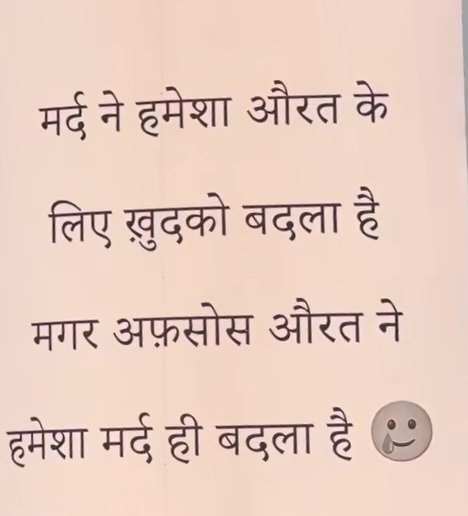 मर्द ने हमेशा औरत के
लिए ख़ुदको बदला है
मगर अफ़सोस औरत ने
हमेशा मर्द ही बदला है 🥲